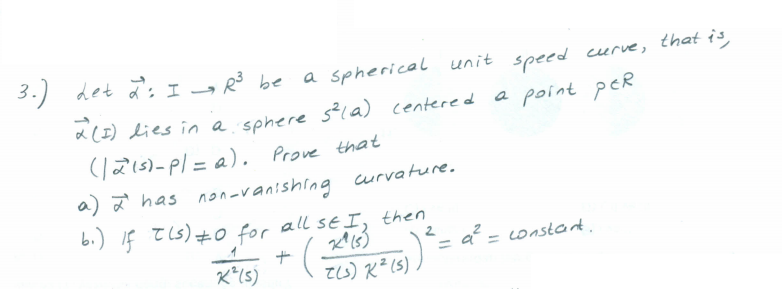 3.) Let α⃗ : I → R³ be a spherical unit speed curve, that is,
α⃗(I) lies in a sphere S²(a) centered a point p∈R
(|α⃗(s)-p| = a). Prove that
a) α⃗ has non-vanishing curvature.
b.) If τ(s)≠0 for all s∈I, then
1/K²(s) + (K'(s)/(τ(s) K²(s)))² = a² = constant.